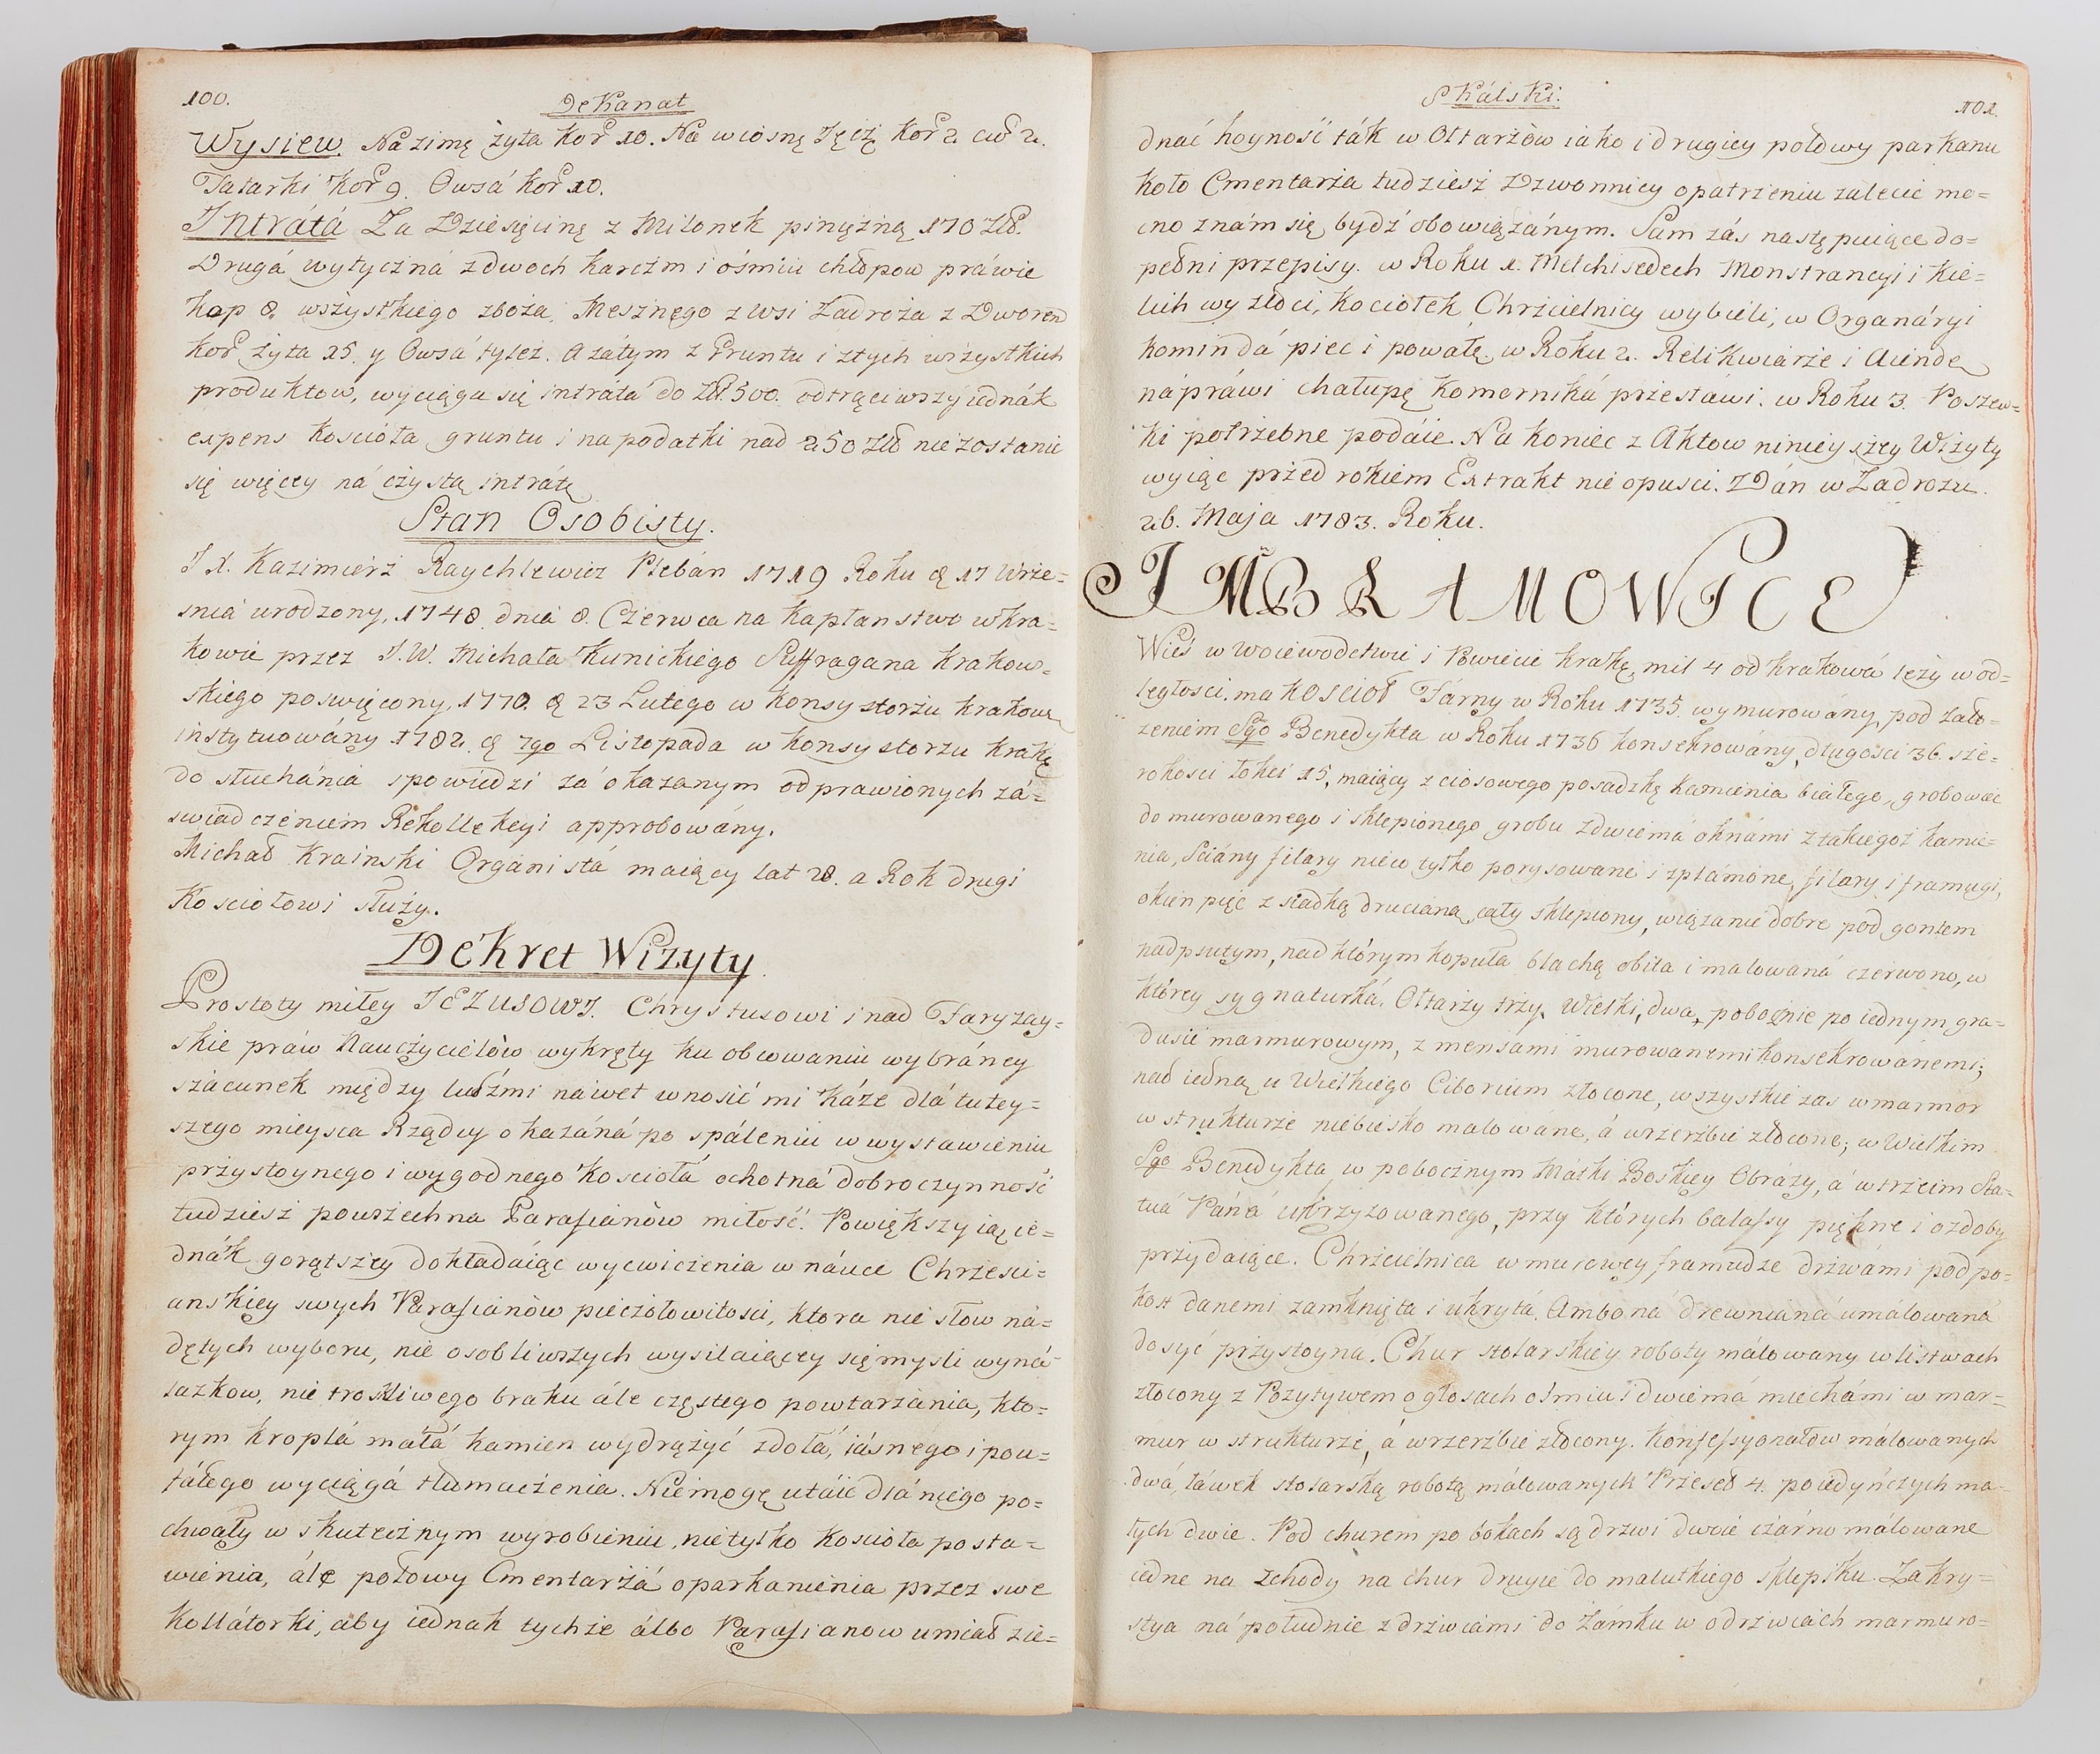 100.
Dekanat
Wysiew. Na zimę żyta kor 10. Na wiosnę Jęcz kor 2 cw 2.
Tatarki kor 9. Owsá kor 10.
Intrátá Za Dziesięcinę z Milonek pinężną 170 Zł.
Drugá wytyczná z dwoch karczm i ośmiu chłopow práwie
kop 8 wszystkiego zboża, Mesznego z wsi Zadroża z Dworem
kor żyta 15. y Owsá tyleż. A zátym z Gruntu i z tych wszystkich
produktow, wyciąga się intrata do Zł. 500. odtrąciwszy iednák
expens kościoła gruntu i na podatki nad 250 Zł nie zostanie
się więcey ná czystą intratę
Stan Osobisty.
J X. Kazimierz Raychlewicz Plebán 1719 Roku d 17 Wrze=
śnia urodzony, 1748. dnia 8. Czerwca na kapłanstwo w kra=
kowie przez J. W. Michała Kunickiego Suffragana krakow=
skiego poswięcony, 1770. d 23 Lutego w konsystorzu krakow
instytuowány 1782. d 7go Listopada w konsystorzu krak
do słuchánia spowiedzi zá okazanym odprawionych zá=
swiadczeniem Rekollekcyi approbowány.
Michał Krainski Organistá maiący lat 28. a Rok drugi
Kosciołowi służy.
Dekret Wizyty
Prostoty miłey JEZUSOWI. Chrystusowi i nad Faryzay=
skie práw Nauczycielòw wykręty ku obcowaniu wybráney
szácunek między ludźmi náwet wnosić mi káże dlá tutey=
szego mieysca Rządcy okazáná po spáleniu w wystawieniu
przystoynego i wygodnego kosciołá ochotná dobroczynność
tudziesz powszechna Parafianòw miłość. Powiększyią ie=
dnák gorątszey dokładaiąc wycwiczenia w náuce Chrzesci=
anskiey swych Parafianòw pieczołowitosci, ktora nie słow ná=
dętych wyboru, nie osobliwszych wysilaiącey się mysli wyná=
lazkow, nie troskliwego braku ále częstego powtarzánia, kto=
rym kroplá małá kamien wydrążyć zdołá, iásnego i pou=
fáłego wyciągá tłumaczenia. Niemogę utáić dlá niego po=
chwały w skutecznym wyrobieniu, nietylko kosciołá posta=
wienia, ále połowy Cmentarżá oparkanienia przez swe
kollátorki, aby iednak tychże álbo Parafianow umiał zie=
Skálski.
101.
dnać hoyność ták w Ołtarżòw iako i drugiey połowy parkanu
koło Cmentarża tudziesz Dzwonnicy opatrzeniu zalecić mo=
cno znám się bydź obowiązánym. Sam zás następuiące do=
pełni przepisy. w Roku 1. Melchisedech Monstrancyi i kie=
lich wyzłoci, kociołek Chrzcielnicy wybieli, w Organáryi
komin dá piec i powałę. w Roku 2. Relikwiarże i
nápráwi chałupę komorniká przestáwi. w Roku 3. Poszew=
ki potrzebne podáie. Na koniec z Aktow ninieyszey Wizyty
wyiąć przed rokiem Extrakt nie opusci. Dán w Zadrożu.
26. Maja 1783. Roku.
IMBRAMOWICE
Wieś w Woiewodztwie i Powiecie krak, mil 4 od krakowá leży w od=
ległosci. ma KOSCIOŁ Fárny w Roku 1735. wymurowány, pod zało=
żeniem Sgo Benedykta w Roku 1736 konsekrowány, długości 36. sze=
rokości łokci 15, maiący z ciosowego posadzkę kamienia białego, grobowiec
do murowanego i sklepionego grobu z dwiemá oknámi z takiegoż kamie=
nia, Sciány filary nieco tylko porysowane i zplámone, filary i framugi,
okien pięć z siadką drucianą, cały sklepiony, wiązanie dobre pod gontem
nadpsutym, nad którym kopuła blachą obita i malowaná czerwono, w
którey sygnaturká. Ołtarży trży, Wielki, dwa poboczne po iednym gra=
dusie marmurowym, z mensami murowanemi konsekrowánemi;
nad iedną u Wielkiego Ciborium złocone, wszystkie zas w marmor
w strukturże niebiesko malowáne, á w rzeźbie złocone; w Wielkim
Sgo Benedykta, w pobocznym Mátki Boskiey Obrázy, á w trzecim Sta=
tuá Páná ukrzyżowanego, przy których balassy piękne i ozdoby
przydaiące. Chrzcielnica w murowey framudze drzwámi pod po=
kost danemi zamknięta i ukrytá. Amboná drewniána umalowaná
dosyć przystoyna. Chur stolarskiey roboty málowany w listwach
złocony z Pozytywem o głosach ośmiu i dwiemá miechámi w mar=
mur w strukturże, á w rzeźbie złocony. Konfessyonałòw málowanych
dwá, łáwek stolarską robotą málowanych Przesed 4. poiedyńczych ma=
łych dwie. Pod churem po bokach są drzwi dwoie czárno málowane
iedne na schody na chur drugie do malutkiego sklepiku. Zakry=
stya ná południe z drzwiami do Zámku w odrzwiach marmuro=